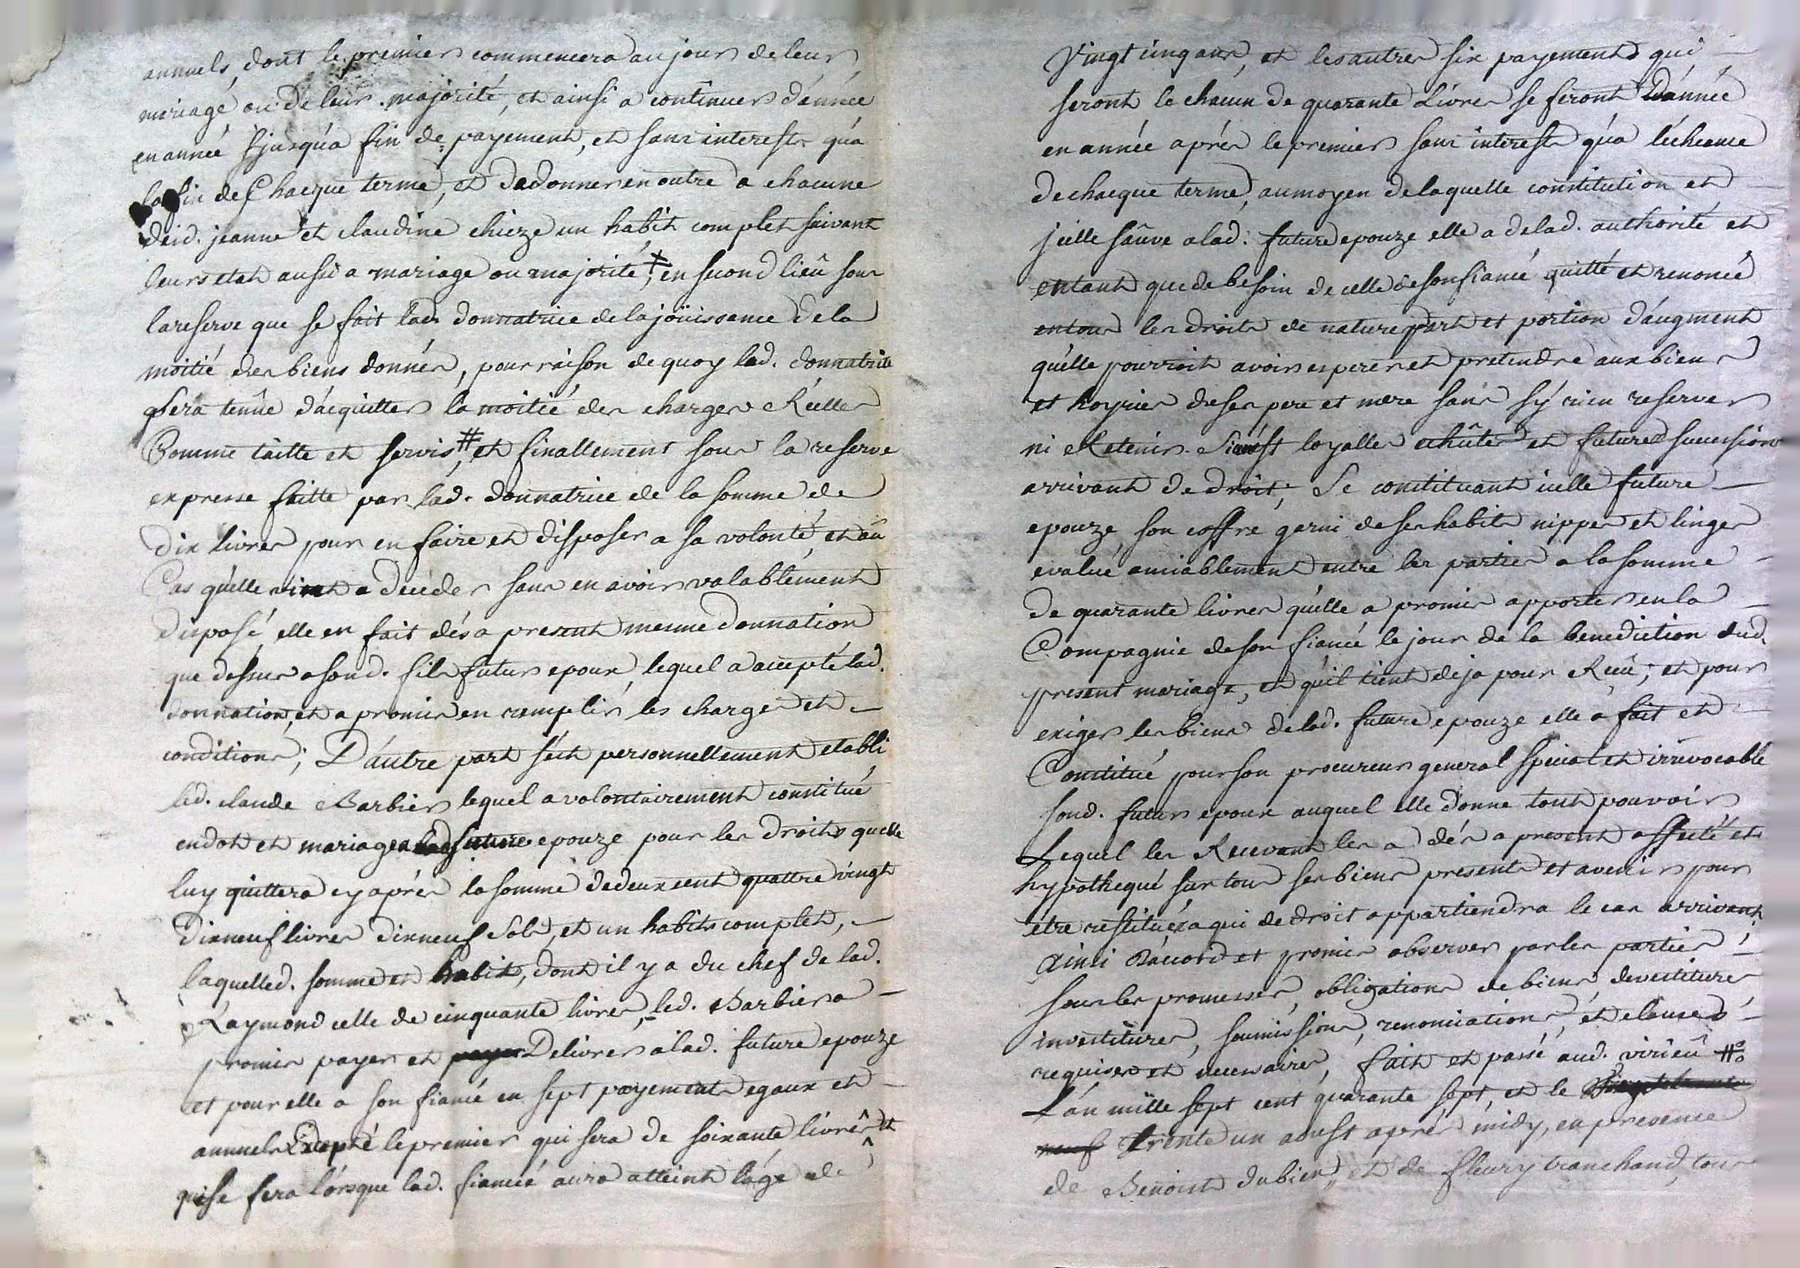 annuels, dont le premier commencera au jour de leur
mariage ou de leur majorité, et ainsi a continuer d'année
en année jusqu'a fin de payement, et sans interest qu'a
la fin de Chacque terme, et de donner en outre a chacune
desd. jeanne et claudine chieze un habit complet suivant
leurs etat aussi a mariage ou majorité ‡, en second lieû sous
la reserve que se fait lad. donnatrice de la joüissance de la
moitié des biens donnés, pour raison de quoy lad. donnatrice
sera tenûe d'acquitter la moitié des charges Réelles
Comme taille et servis #, et finallement sous la reserve
expresse faitte par lad. donnatrice de la somme de
dix livres pour en faire et disposer a sa volonté, et au
Cas qu'elle vint a deceder sans en avoir valablement
disposé elle en fait dés a present mesme donnation
que dessus a sond. fils futur epoux, lequel a accepté lad.
donnation, et a promis en remplir les charges et
conditions; D'autre part s'est personnellement etabli
led. claude Barbier lequel a volontairement constitué
en dot et mariage a lad. future epouze pour les droits quelle
luy quittera cy aprés la somme de deux cent quattre vingt
dix neuf livres dix neuf Sols, et un habits complet,
laquelled. somme et habit, dont il y a du chef de lad.
Raymond celle de cinquante livres, led. Barbier a
promis payer et payer Delivrer a lad. future epouze
et pour elle a son fiancé en sept payement egaux et
annuels Excepté le premier qui sera de soixante livres et
qui se fera lórsque lad. fiancée aura atteint l'age de
Vingt cinq ans, et les autres six payements qui
seront le chacun de quarante Livres se feront d'année
en année aprés le premier sans interest qu'a l'écheance
de chacque terme, au moyen de laquelle constitution et
icelle saûve a lad. future epouze elle a de lad. authorité et
entant que de besoin de celle de son fiancé quitté et renoncé
en tous les droits de nature part et portion d'augment
qu'elle pourroit avoir esperer et pretendre aux biens
et hoyries de ses pere et mere sans s'y rien reserver
ni Retenir Si n'est loyalles echûtes et futures succession
arrivant de droit, Se constituant icelle future
epouze son coffre garni de ses habits nippes et linges
evalué amiablement entre les parties a la somme
de quarante livres qu'elle a promis apporter en la
Compagnie de son fiancé le jour de la benediction dud.
present mariage, et qu'il tient deja pour Reçû; et pour
exiger les biens de lad. future epouze elle a fait et
Constitué pour son procureur general special et irrevocable
sond. futur epoux auquel elle donne tout pouvoir
Lequel les Recevant les a dés a present affecté et
hypothequé sur tous ses biens present et avenir pour
etre restitués a qui de droit appartiendra le cas arrivant
Ainsi d'accord et promis observer par les parties
sous les promesses, obligations de biens devestitures
investitures, soumissions, renonciations, et clauses
requises et necessaires, fait et passé aud. virieû #
L'an mille sept cent quarante sept, et le
neuf trente un aoust aprés midy, en presence
de Benoist dubien, et de fleury tranchand, tous